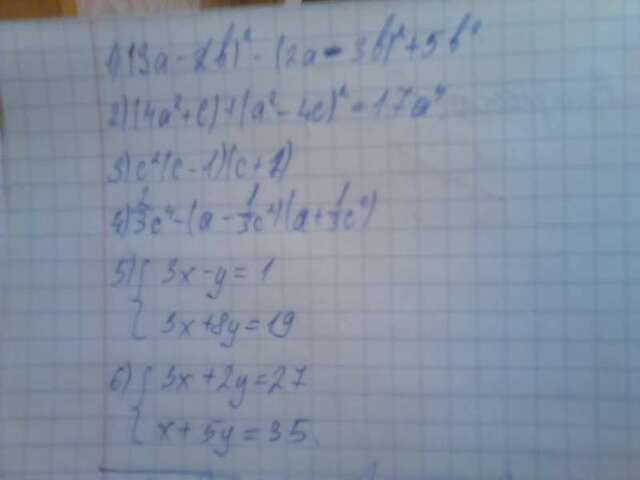 1) (3a-2b)² - (2a-3b)² + 5b²
2) (4a²+c) + (a²-4c)² - 17a⁴
3) c²(c-1)(c+2)
4) 1/3c⁴ - (a - 1/3c²)(a + 1/3c²)
5) { 3x-y=1
3x+8y=19
6) { 3x+2y=27
x+5y=35